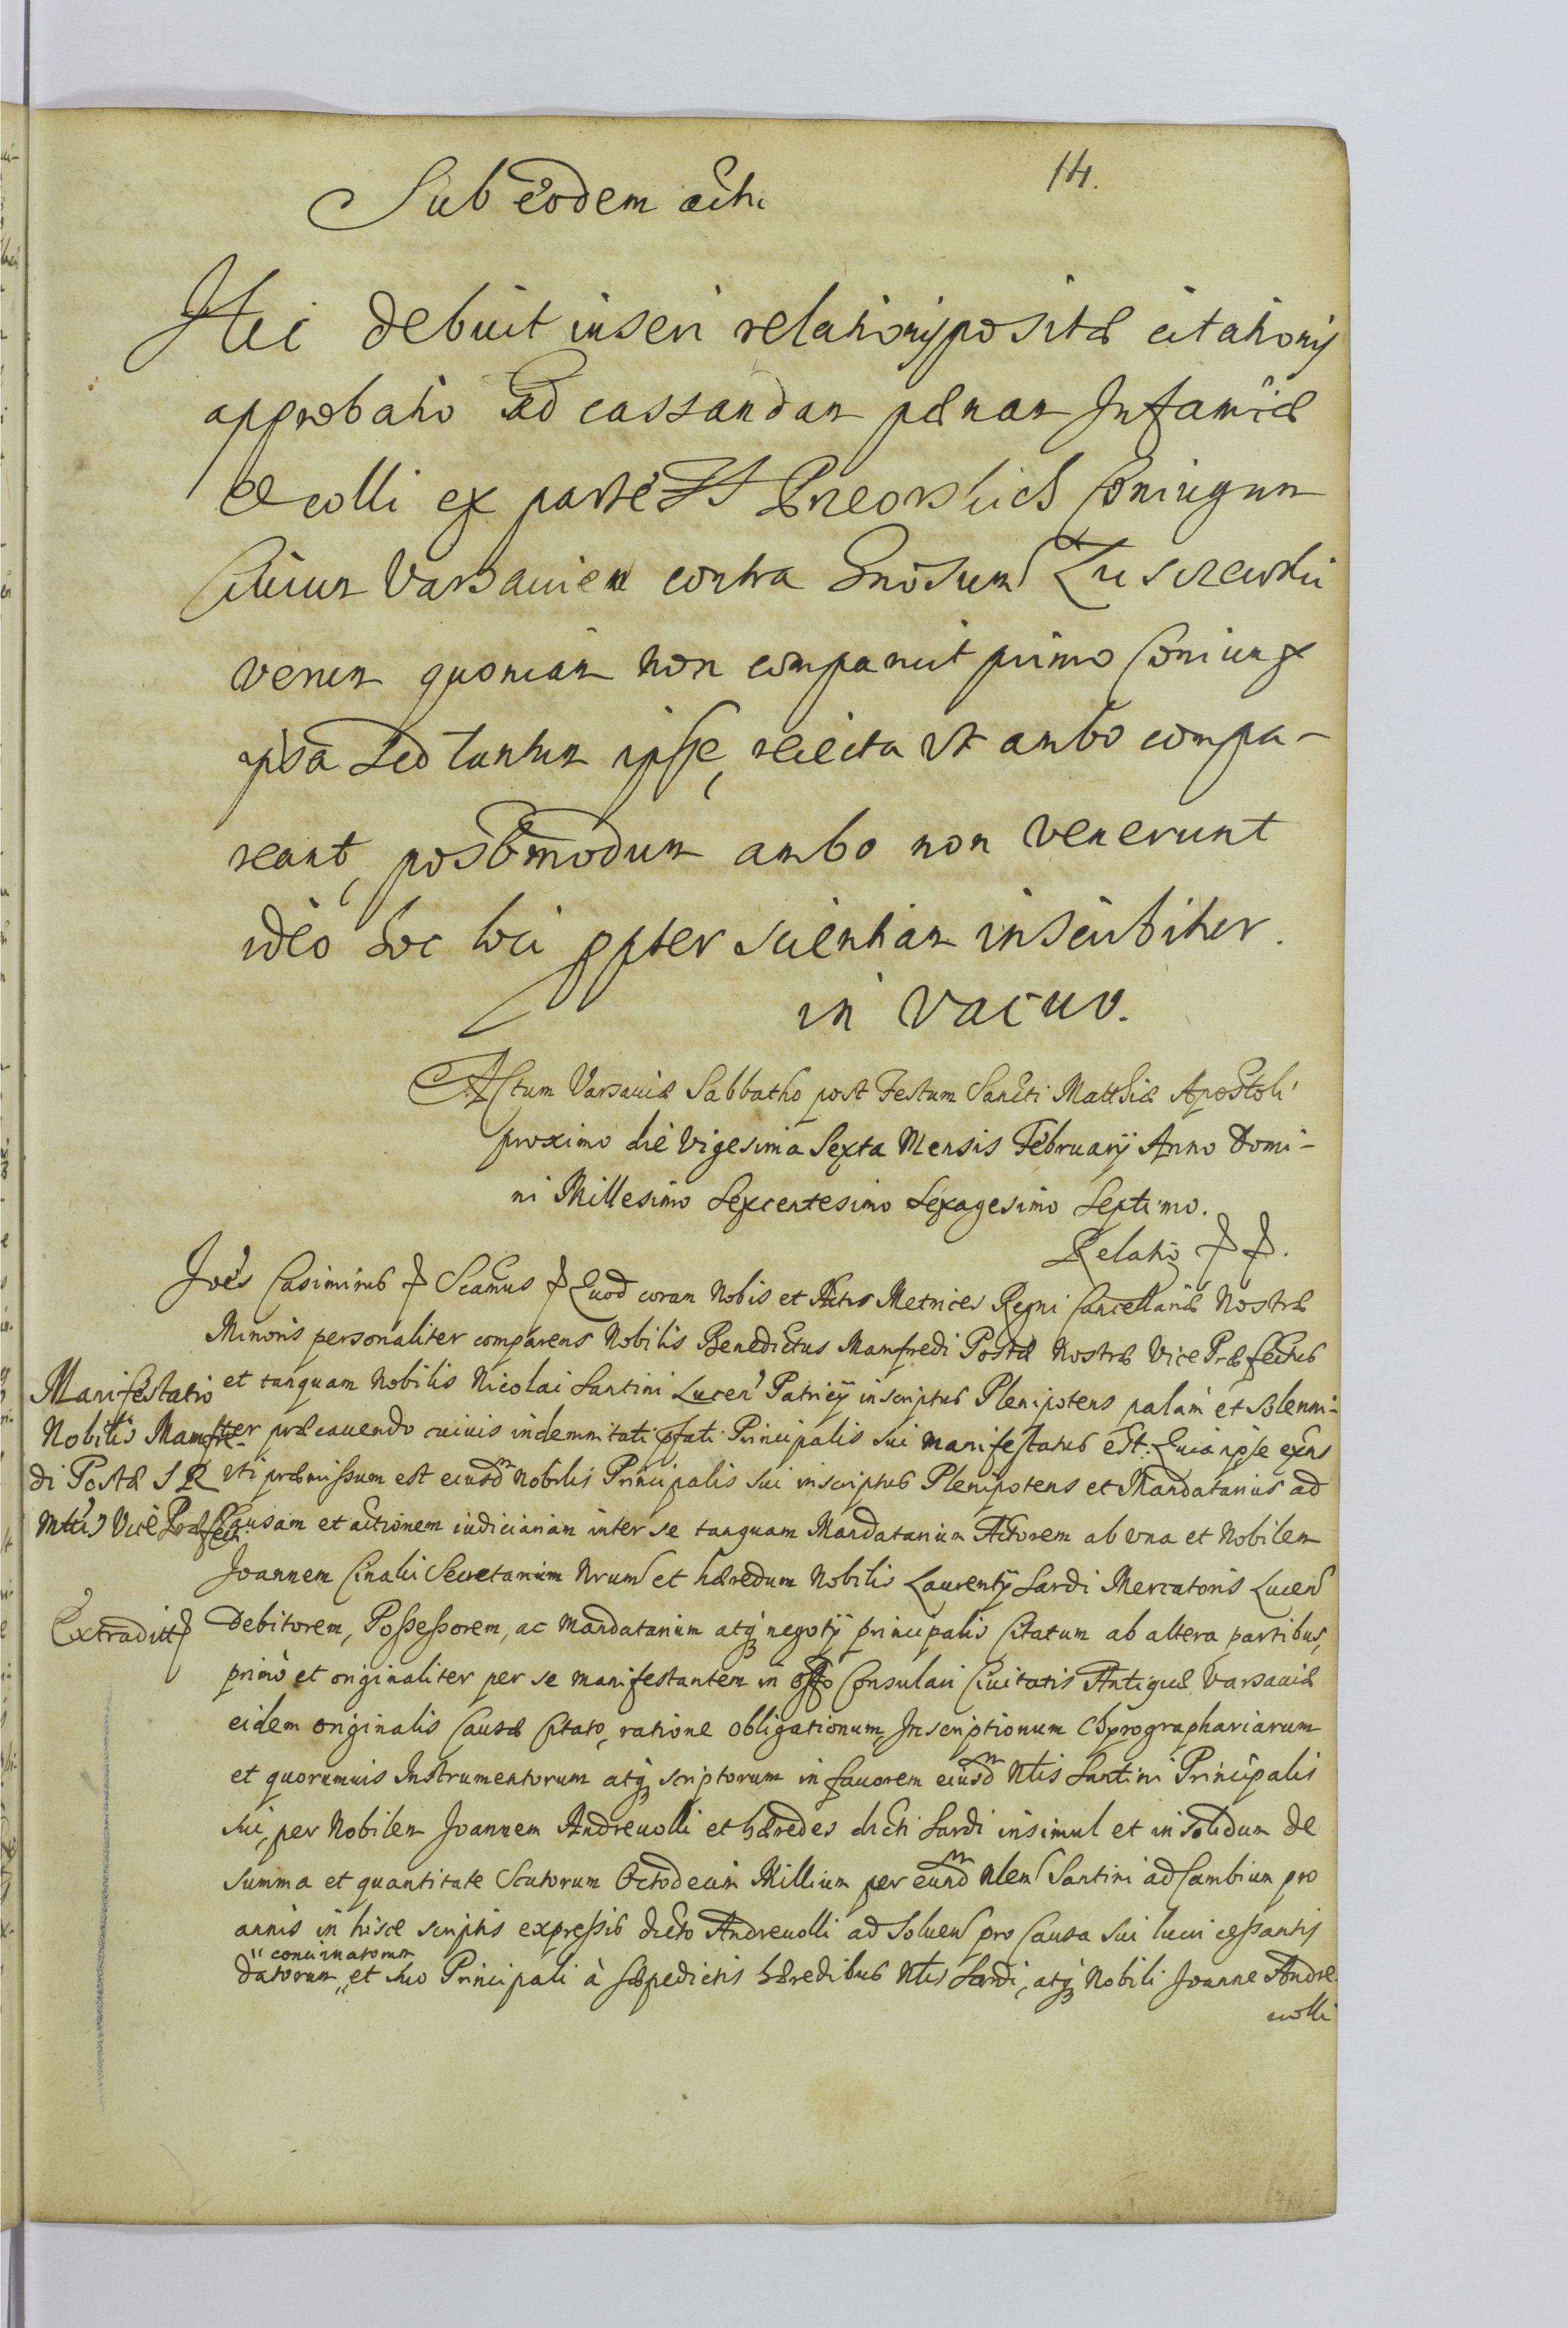 14.
Sub eodem actu
Hic debuit inseri relationis positæ citationis
approbatio ad cassandam pænam Infamiæ
et colli ex parte Coniugum
Civium Varsavien contra Gnosum Luszewski
verum quoniam non comparuit primo Coniunx
ipsa sed tantum ipse, reiecta ut ambo compa-
reant, postmodum ambo non venerunt
ideo hoc loci ppter scientiam inscribitur.
in vacuo.
Actum Varsaviæ Sabbatho post Festum Sancti Matthiæ Apostoli
proximo die Vigesima Sexta Mensis Februarÿ Anno Domi-
ni Millesimo Sexcentesimo Sexagesimo Septimo.
Relatio
Joes Casimirus Quod coram Nobis et Actis Metrices Regni Cancellariæ Nostræ
Minoris personaliter comparens Nobilis Benedictus Manfredi Postæ Nostræ Vice Præfectus
et tanquam Nobilis Nicolai Santini Lucen Patricÿ inscriptus Plenipotens palam et solenni-
ter præcavendo cuivis indemnitati pfati Principalis sui manifestatus est. Quia ipse exns
uti præmissum est eiusdm Nobilis Principalis sui inscriptus Plenipotens et Mandatarius ad
Causam et actionem iudiciariam inter se tanquam Mandatarium Actorem ab una et Nobilem
Joannem Cinalli Secretarium Nrum et hæredum Nobilis Laurentÿ Sardi Mercatoris Lucen
Debitorem, Possessorem, ac Mandatarium atq negotÿ principalis Citatum ab altera partibus,
primo et originaliter per se manifestantem in offo Consulari Civitatis Antiquæ Varsaviæ
eidem originalis Causæ Citato, ratione obligationum, Inscriptionum Chyrographariarum
et quorumvis Instrumentorum atq scriptorum in favorem eiusdm Nlis Santini Principalis
sui, per Nobilem Joannem Andreuolli et hæredes dicti Sardi insimul et in solidum de
summa et quantitate Scutorum Octodecim Millium per eundm Nlem Santini ad Cambium pro
annis in hisce scriptis expressis dicto Andreuolli ad solven pro Causa sui lucri cessantis
concinnatorum
datorum et suo Principali à sæpedictis hæredibus Nlis Sardi, atq Nobili Joanne Andre-
uolli
Manifestatio
Nobilis Manfre-
di Postæ S R
Mttis Vice Præfect
Extraditt